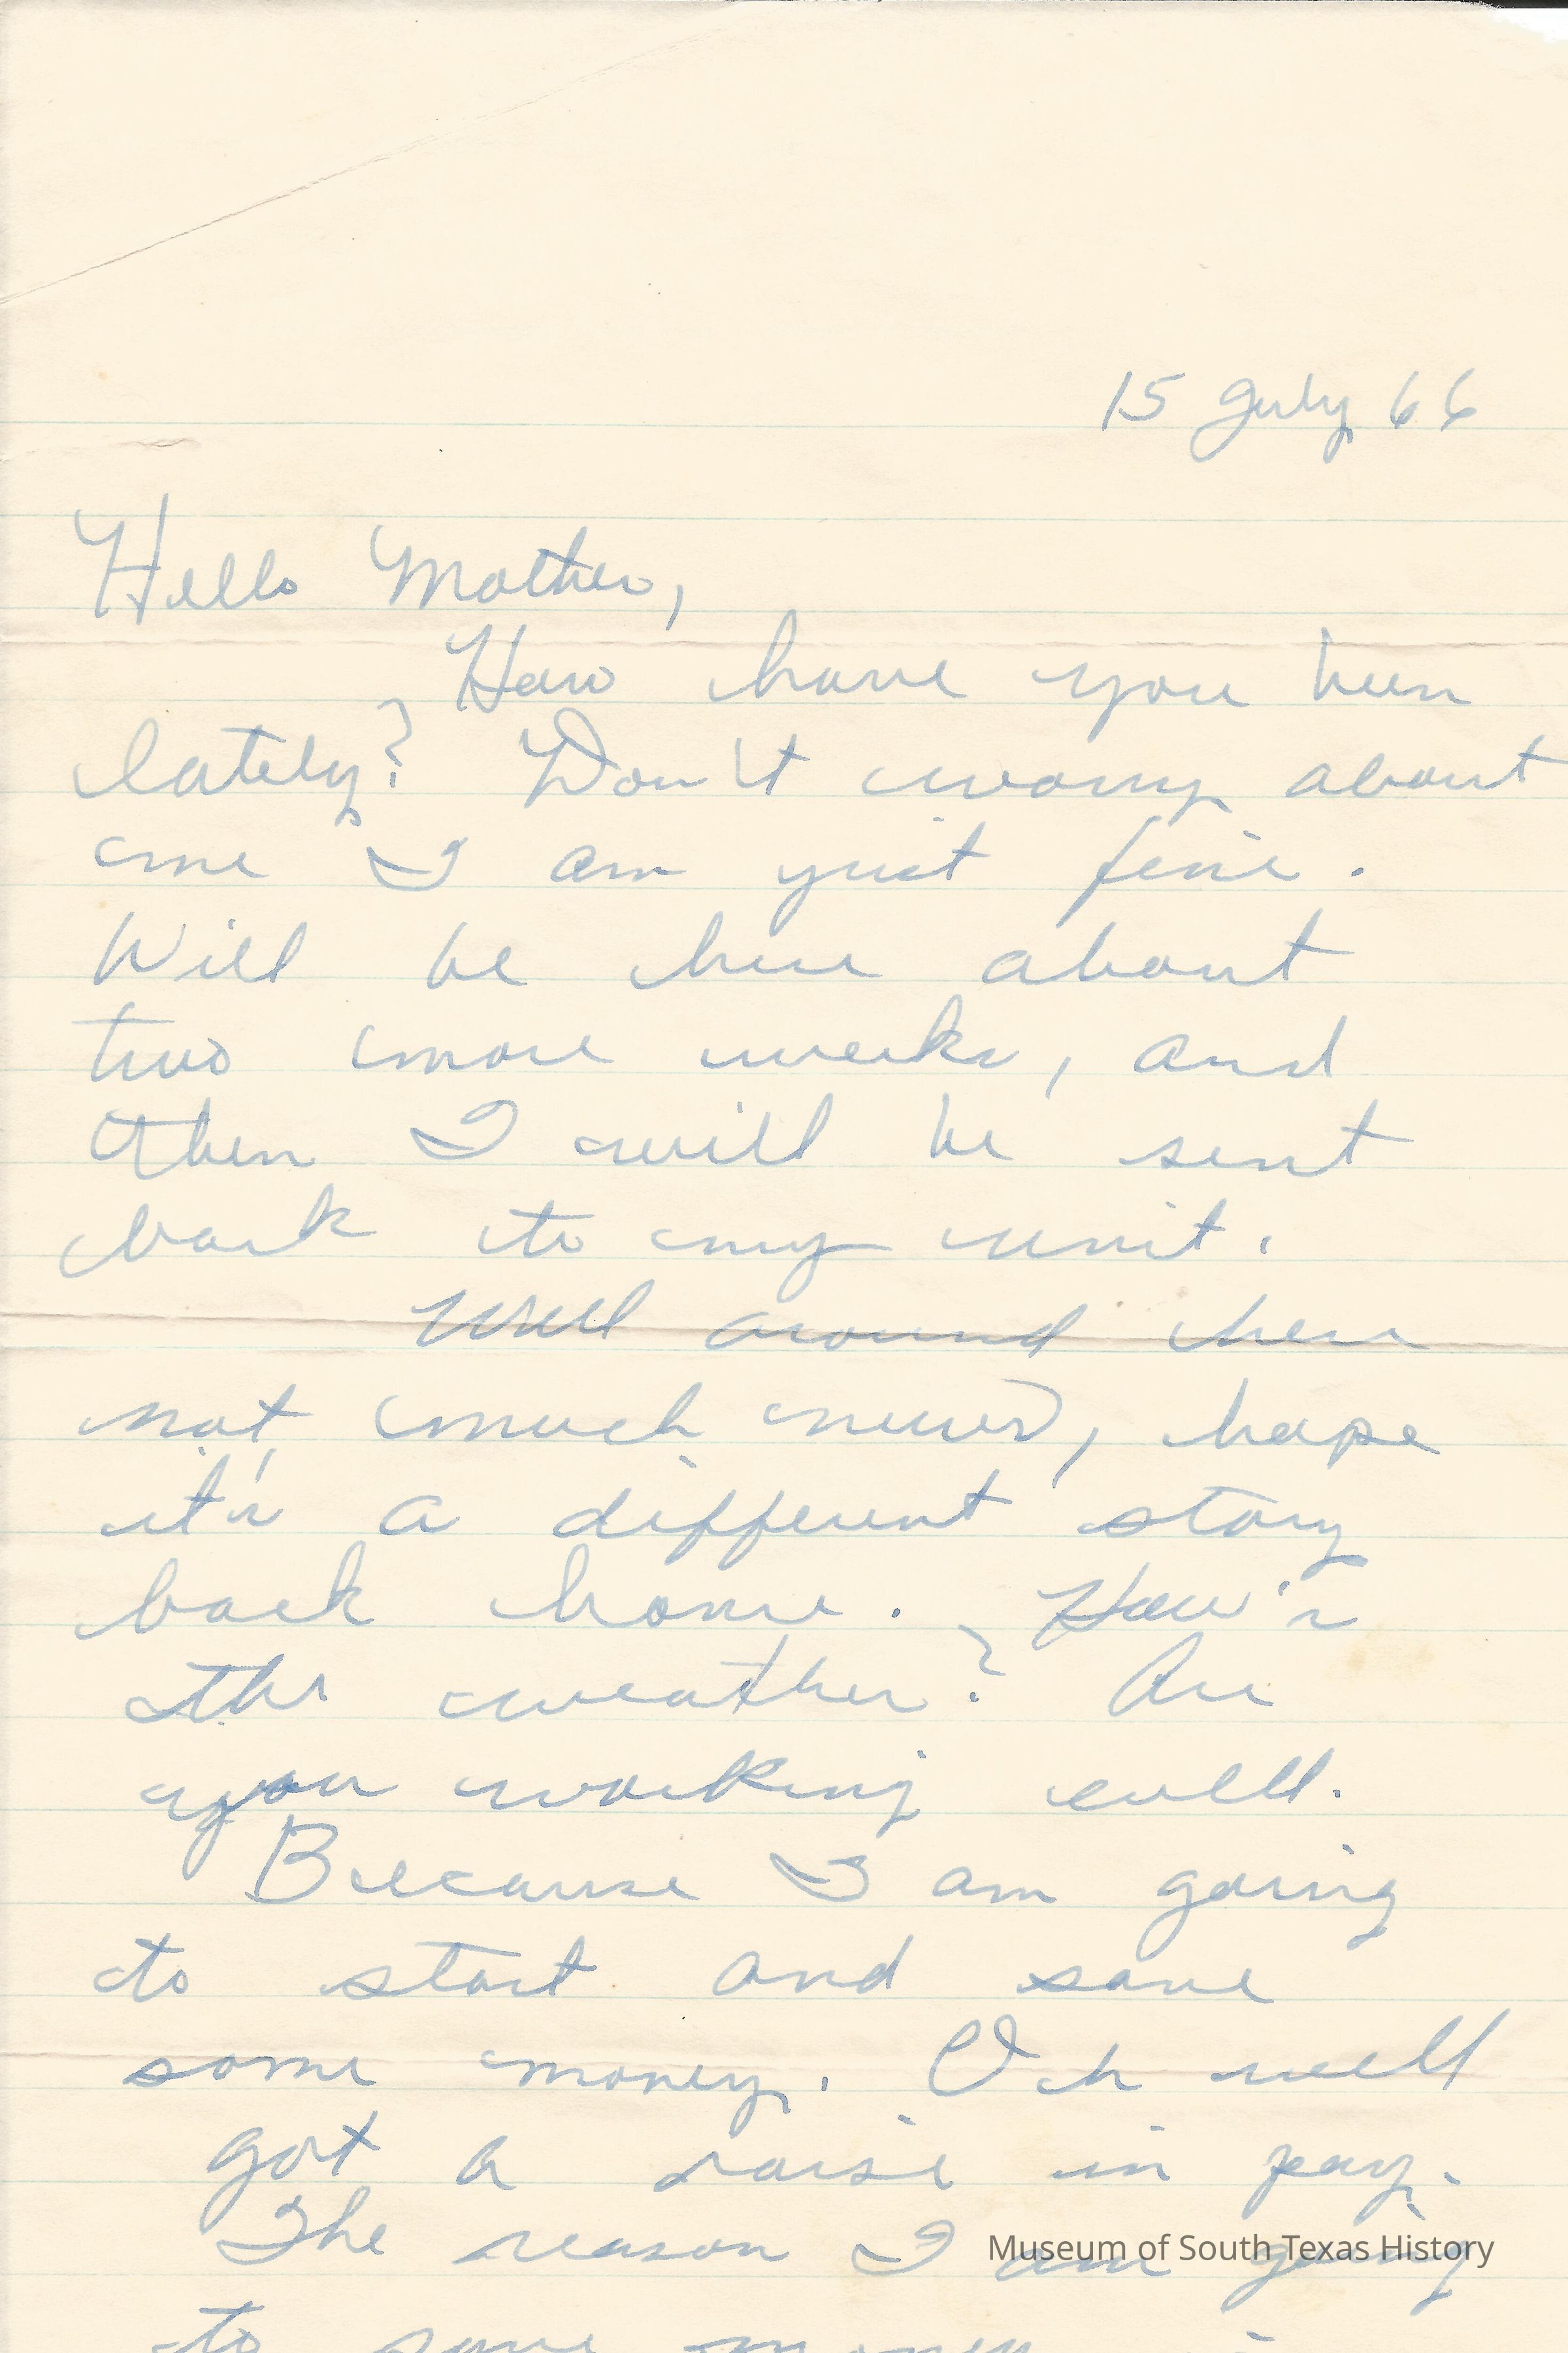 15 July 66
Hello Mother,
How have you been
lately? Don't worry about
me I am just fine.
Will be here about
two more weeks, and
then I will be sent
back to my unit.
Well around here
not much news, hope
it's a different story
back home. How's
the weather? Are
you working well.
Because I am going
to start and save
some money. Oh well
got a raise in pay.
The reason I am going
to save money is
Museum of South Texas History